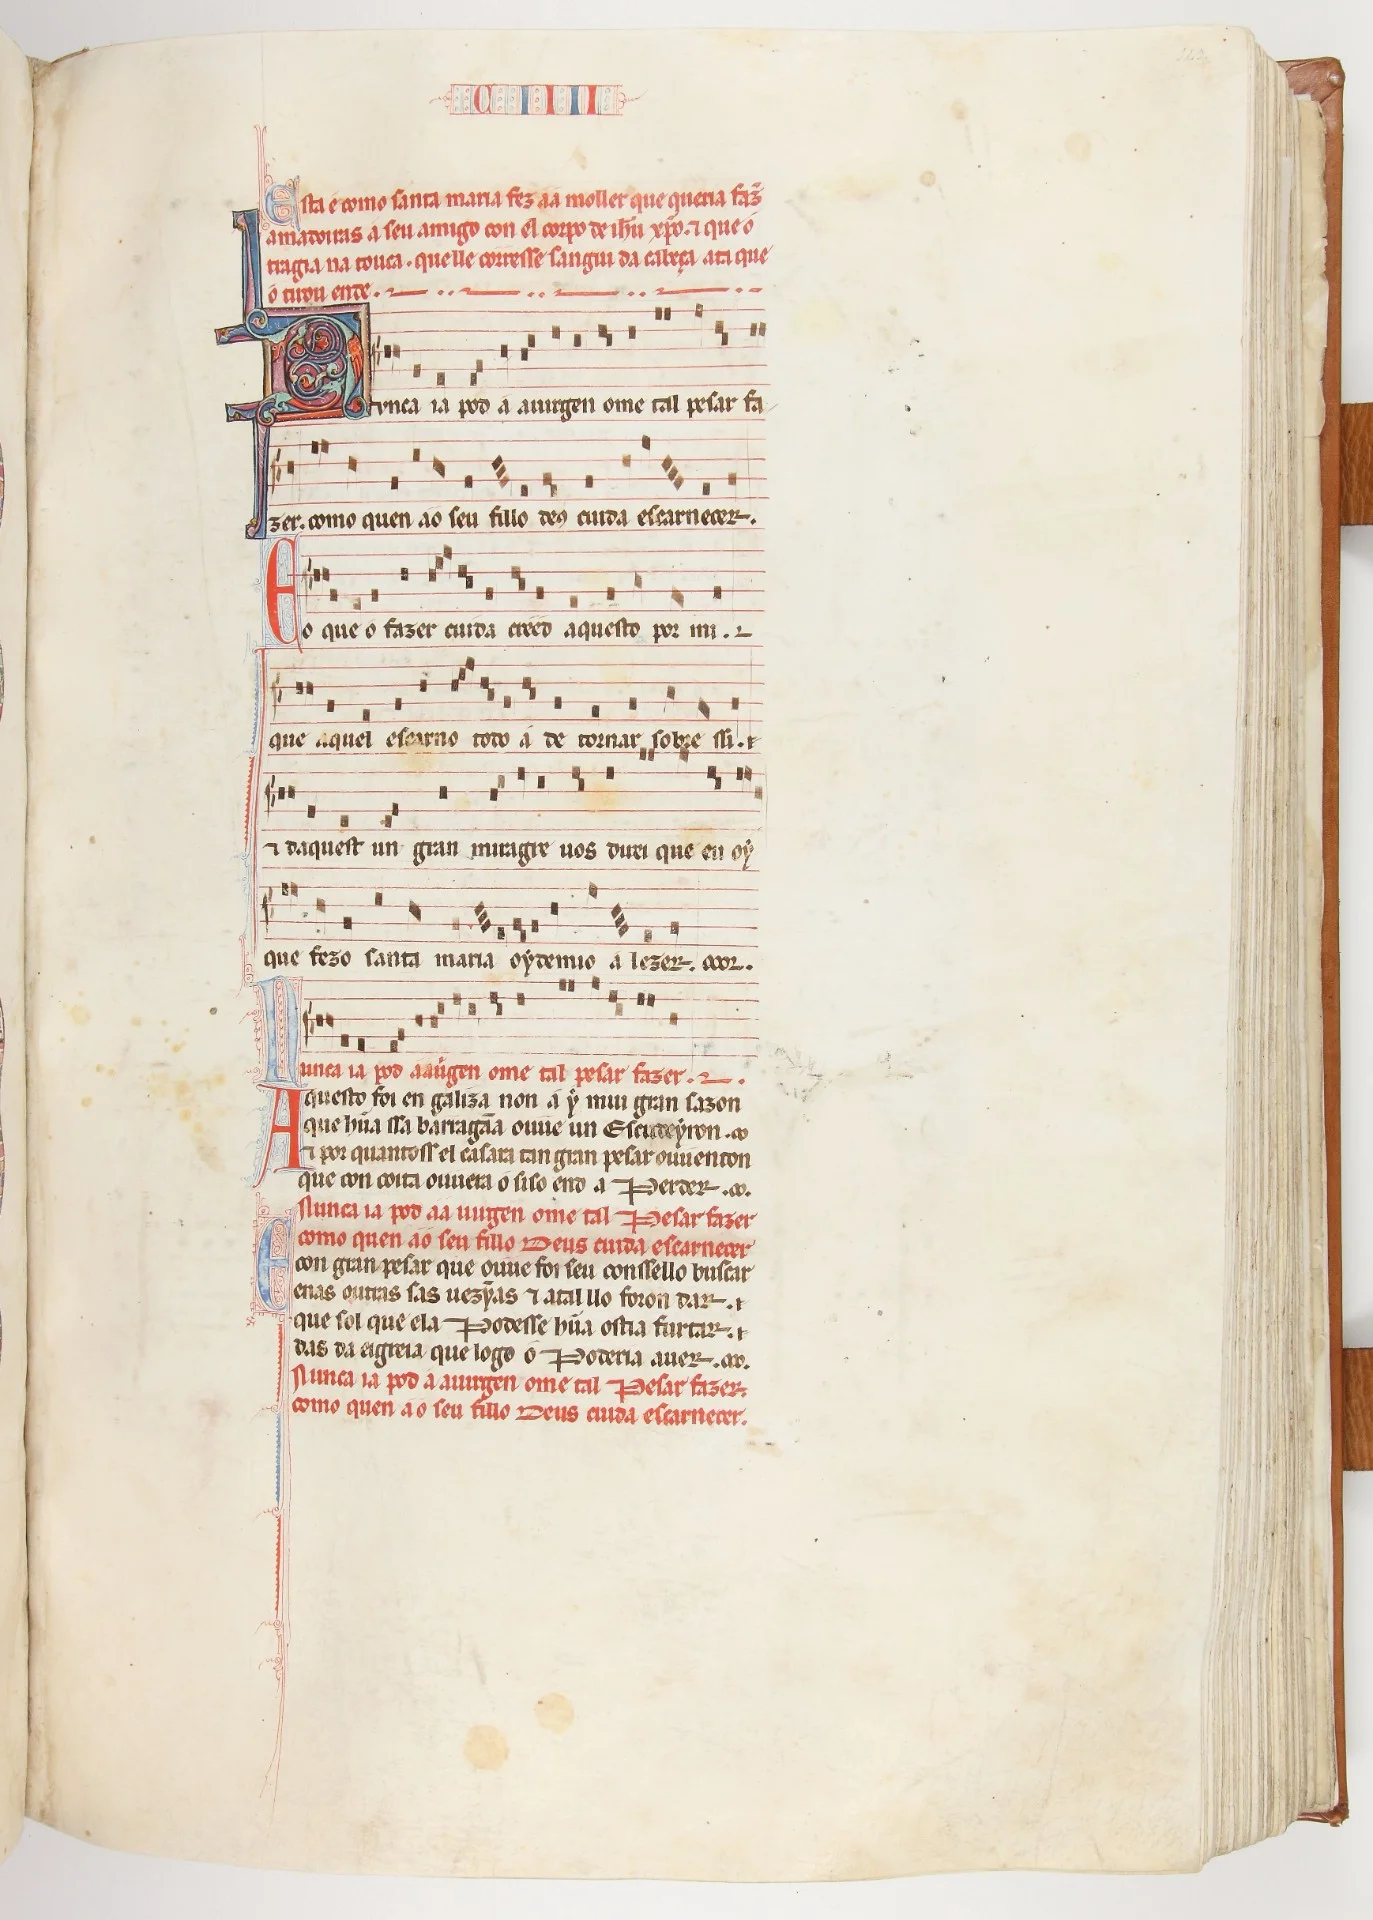 C I I I I
Esta é como santa maria fez aa moller que queria faz̃
amadoiras a seu amigo con el corpo de ihũ xp̃o. ⁊ que o
tragia na touca. que lle corresse sangui da cabeça ata que
o tirou ende.
Nunca ia pod á a uirgen ome tal pesar fa
zer. como quen ao seu fillo deꝯ cuida escarnecer.
E o que o fazer cuida creed aquesto por mi.
que aquel escarno todo á de tornar sobre ssi.
⁊ daquest un gran miragre uos direi que eu oỹ
que fezo santa maria oyde mio a lezer.
Nunca ia pod a aũgen ome tal pesar fazer.
Aquesto foi en galiza non á ỹ mui gran sazon
que hũa ssa barragãa ouue un Escudeyron.
⁊ por quantoss el casara tan gran pesar ouu enton
que con coita ouuera o siso end a Perder.
Nunca ia pod a a uirgen ome tal Pesar fazer
como quen ao seu fillo Deus cuida escarnecer
E con gran pesar que ouue foi seu conssello buscar
enas outras sas uezỹas ⁊ atal llo foron dar.
que sol que ela Podesse hũa ostia furtar.
das da eigreia que logo o Poderia auer.
Nunca ia pod a a uirgen ome tal Pesar fazer.
como quen ao seu fillo Deus cuida escarnecer.